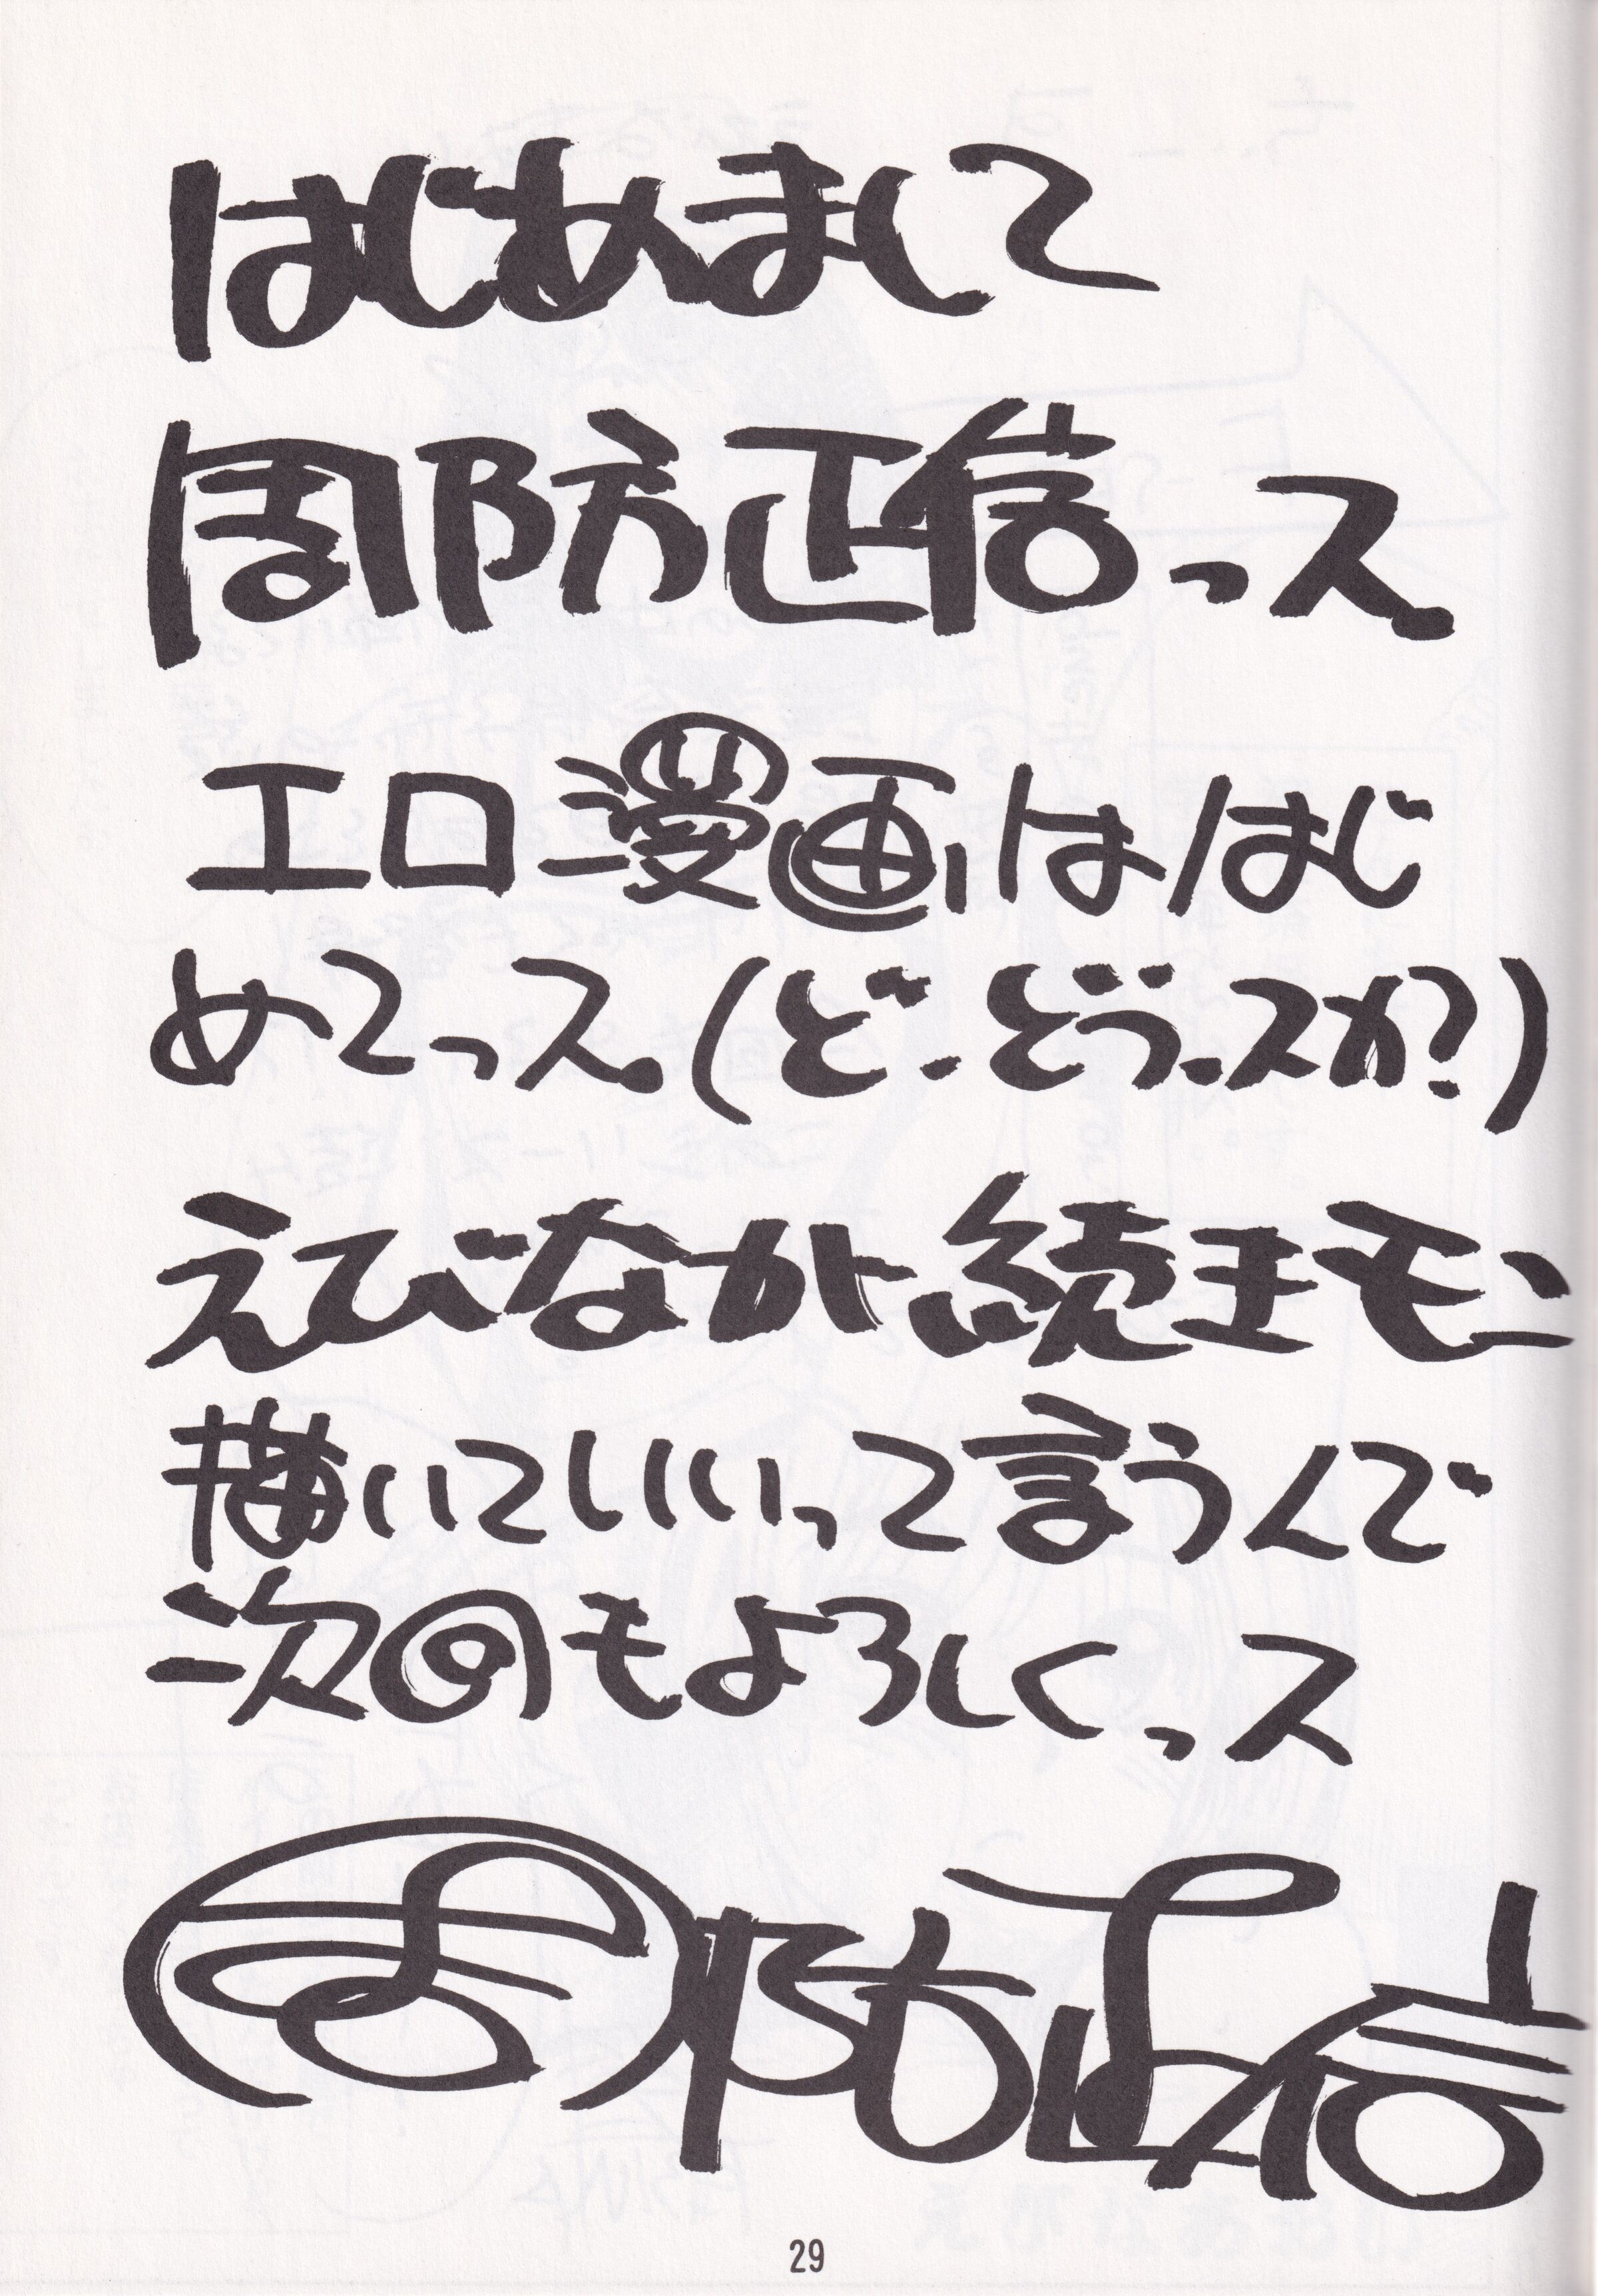 はじめまして
周防正信っス
エロ漫画ははじ
めてっス。(ど、どうっスか?)
えびなが続きモン
描いていいって言うんで
次のもよろしくっス
周防正信
29